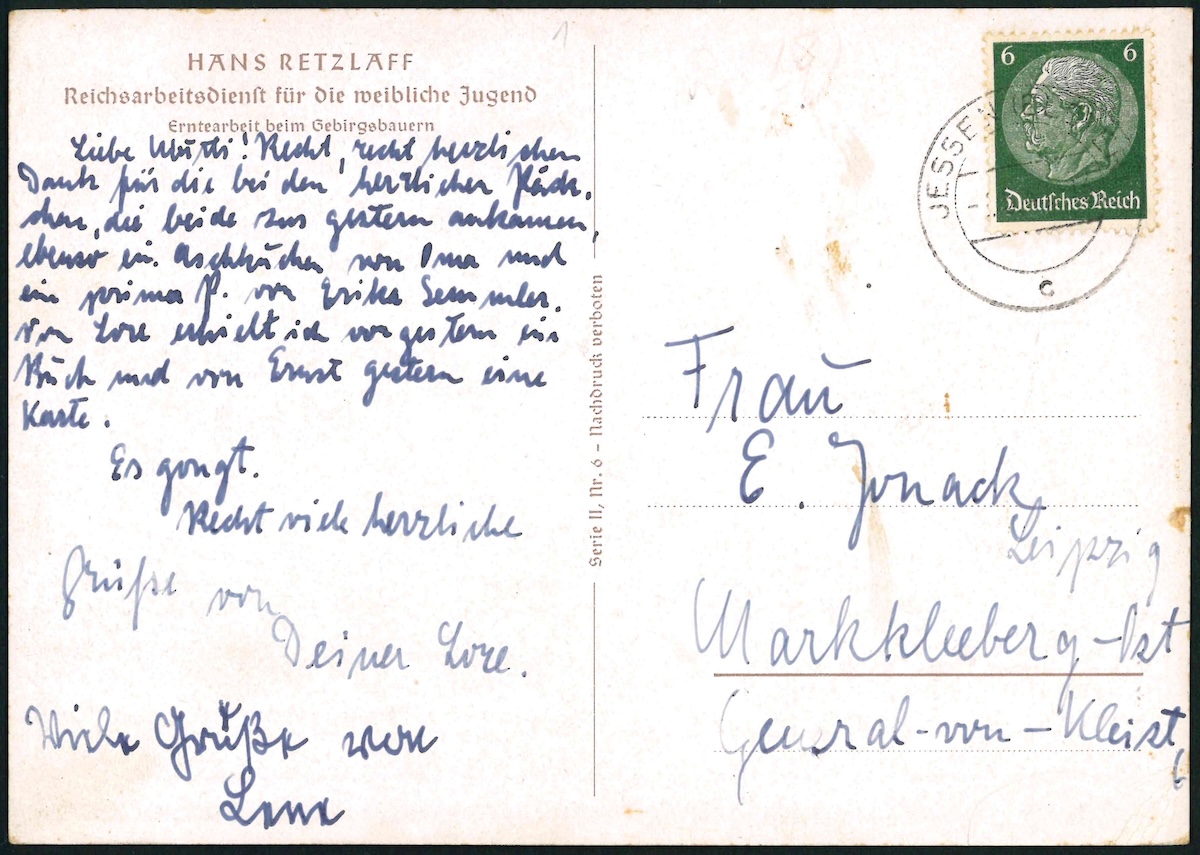 HANS RETZLAFF
Reichsarbeitsdienst für die weibliche Jugend
Erntearbeit beim Gebirgsbauern
Liebe Mutti! Recht, recht herzlichen
Dank für die beiden herrlichen Päck-
chen, die beide gestern ankamen,
ebenso ein Aschkuchen von Oma und
ein prima P. von Erika Semmler.
Von Lore erhielt ich vorgestern ein
Buch und von Ernst gestern eine
Karte.
Es gongt.
Recht viele herzliche
Grüße von
Deiner Lore.
Viele Grüße von
Lene
Serie II, Nr. 6 – Nachdruck verboten
6 6
Deutsches Reich
JESSEN
c
Frau
E. Jonack
Leipzig
Markkleeberg-Ost
General-von-Kleist